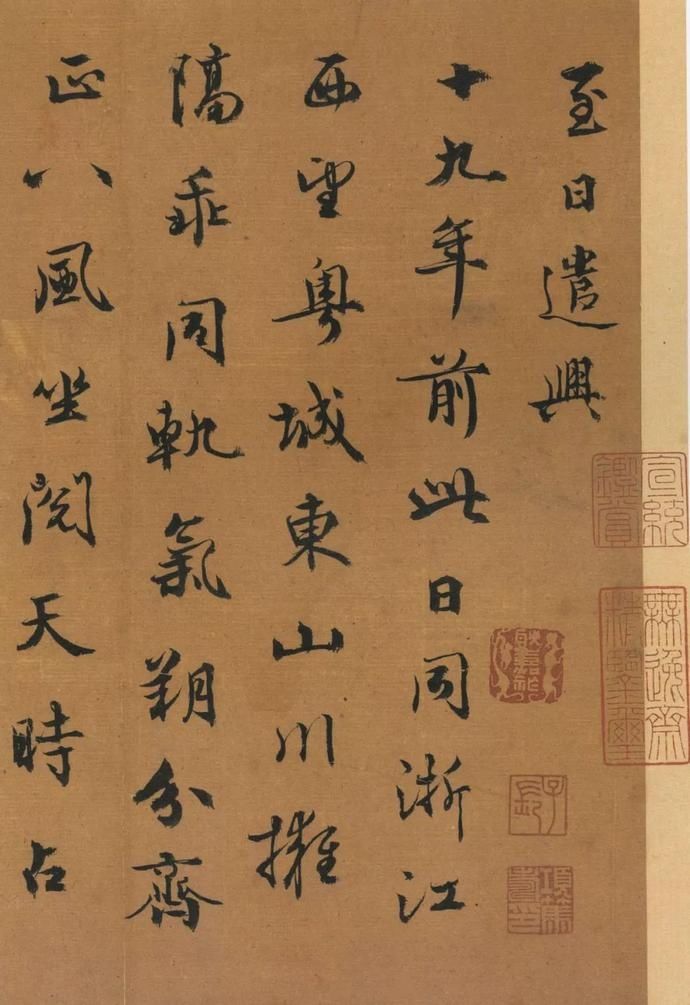 至日遣興
十九年前此日同浙江
西望粵城東山川擁
隔乖同軌氣朔分齊
正八風坐閱天時占
宣統
鑑賞
無逸齋
精鑒璽
子
長
項